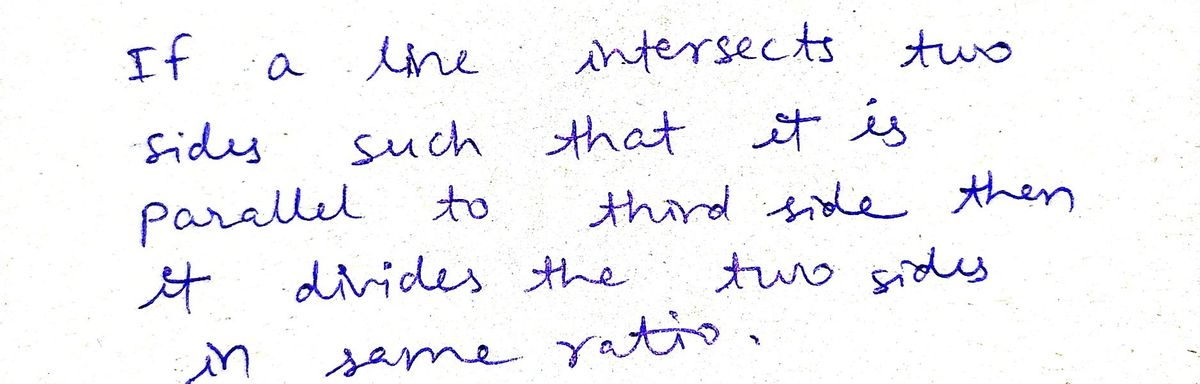 If a line intersects two
sides such that it is
parallel to third side then
it divides the two sides
in same ratio.